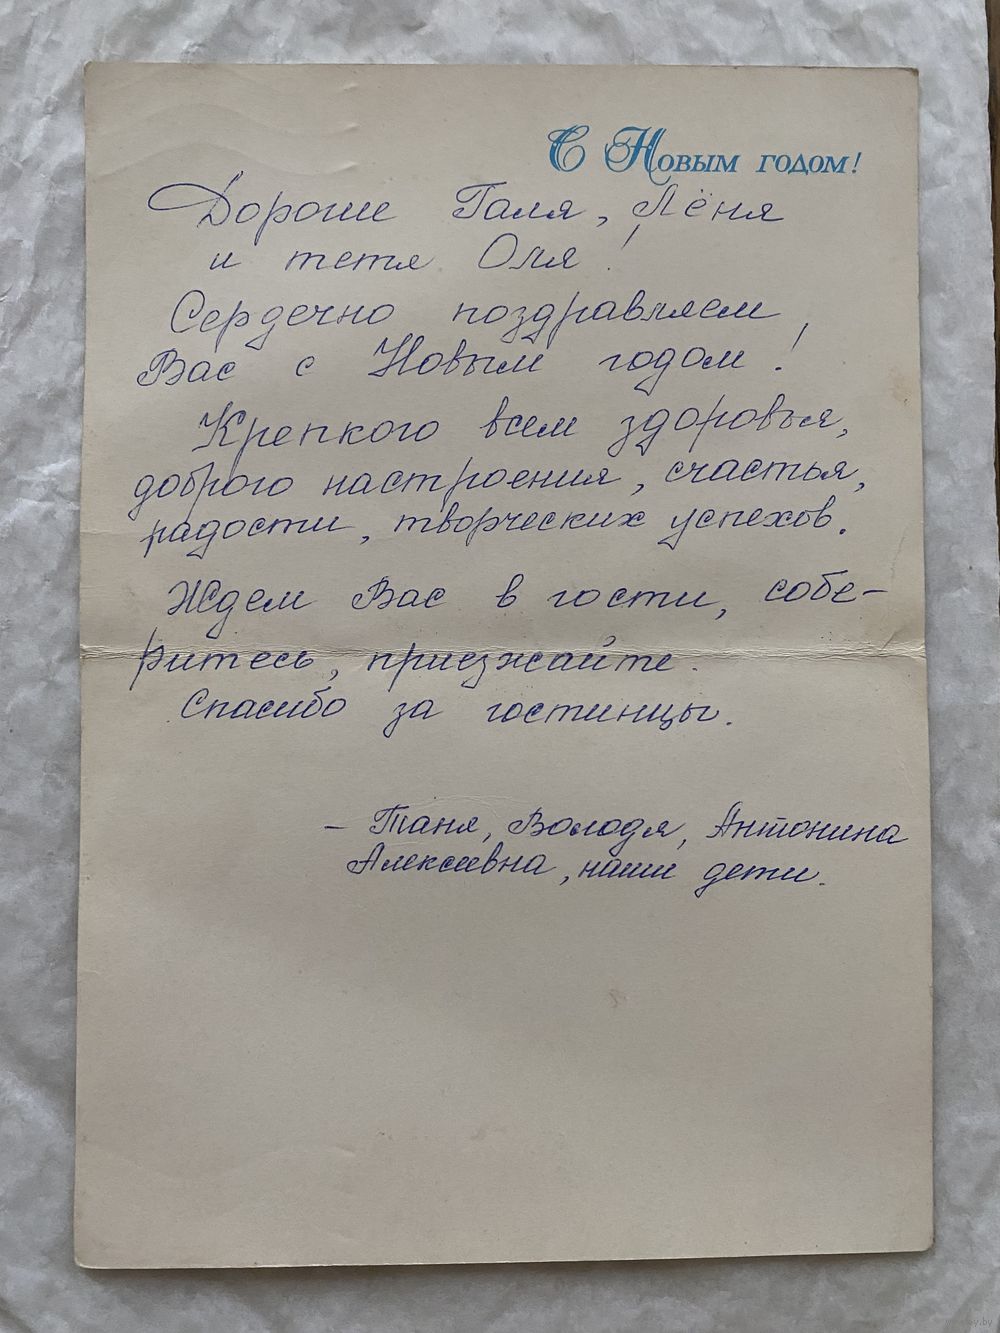 С Новым годом!
Дорогие Галя, Лёня
и тетя Оля!
Сердечно поздравляем
Вас с Новым годом!
Крепкого всем здоровья,
доброго настроения, счастья,
радости, творческих успехов.
Ждем Вас в гости, собе-
ритесь, приезжайте.
Спасибо за гостинцы.
- Таня, Володя, Антонина
Алексеевна, наши дети.